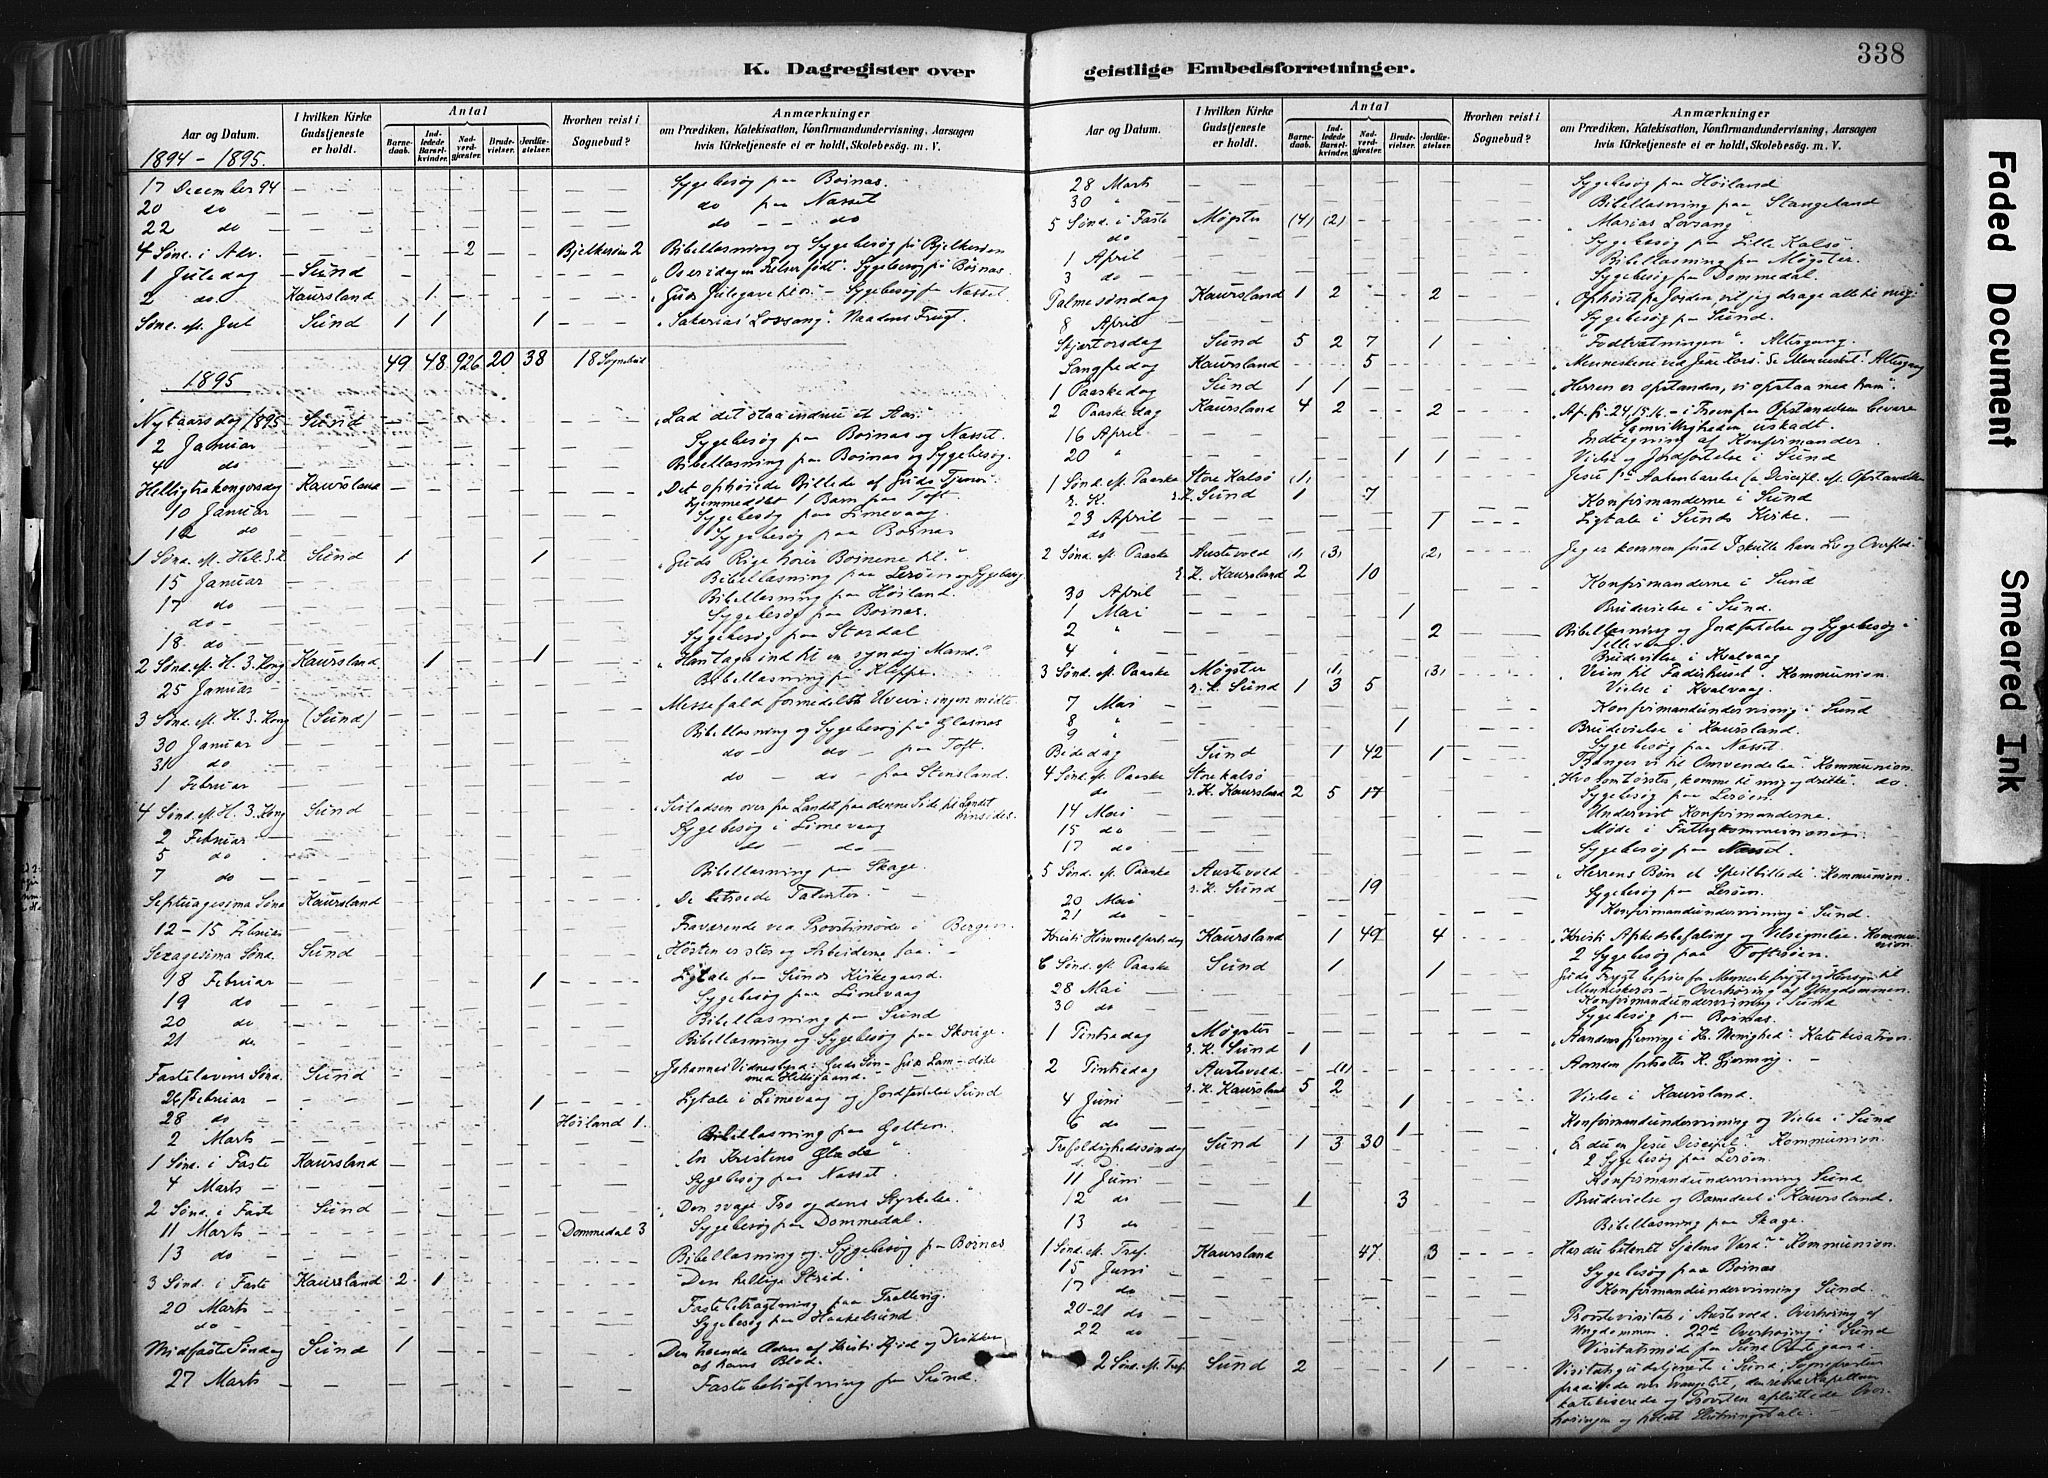 338
K. Dagregister over geistlige Embedsforretninger.
Aar og Datum.
I hvilken Kirke Gudstjeneste er holdt.
Antal
Barnedaab.
Indledede Barselkvinder.
Nadverdgjæster.
Brudevielser.
Jordfæstelser.
Hvorhen reist i Sognebud?
Anmærkninger
om Prædiken, Katekisation, Konfirmandundervisning, Aarsagen
hvis Kirketjeneste ei er holdt, Skolebesøg. m. V.
1894 - 1895.
17 December 94 Sygebesøg paa Boinas.
20 do do paa Nasset
22 do do - do
4 Sønd. i Adv. 2 Bjelkerøen 2 Bibellæsning og Sygebesøg på Bjelkerøen
1 Juledag Sund Sygebesøg på Boinas.
2 do Kaursland 1 "Guds Julegave til os" - Sygebesøg p. Nasset
Sønd. ef. Jul Sund 1 1 1 "Sakarias' Lovsang". Naadens Frugt.
49 48 926 20 38 18 Sognebud
1895
Nytaarsdag 1895 Sund "Lad det staa endnu et Aar."
2 Januar Sygebesøg paa Boinas og Nasset.
4 do Bibellæsning paa Boinas og Sygebesøg.
Helligtrekongersdag Kaursland "Det ophøiede Billede af Guds Tjener"
Hjemmedøbt 1 Barn paa Toft.
10 Januar Sygebesøg paa Limevaag.
12 do Sygebesøg paa Boinas
1 Sønd. ef. Hel. 3 K. Sund 1 1 "Guds Rige hører Børnene til."
15 Januar Bibellæsning paa Lerøen og Sygebesøg.
17 do Bibellæsning paa Høiland.
do Sygebesøg paa Boinas.
18 do Sygebesøg paa Stordal
2 Sønd. ef. H. 3. Kong Kaursland. 1 1 "Han tages ind til en syndig Mand."
25 Januar Bibellæsning på Kleppe.
3 Sønd. ef. H. 3. Kong (Sund) Messefald formedelst Uveir: ingen mødte.
30 Januar Bibellæsning og Sygebesøg på Glesnas
31 do do - do - paa Toft.
1 Februar do - do - paa Stensland.
4 Sønd. ef. H. 3. Kong Sund
2 Februar Sygebesøg i Limevaag
5 do do - do
7 do Bibellæsning paa Skage.
Septuagesima Sønd Kaursland "De betroede Talenter"
12-15 Februar Fraværende ved Provstimøde i Bergen.
Sexagesima Sønd. Sund "Høsten er stor og Arbeiderne faa."
18 Februar 1 Ligtale paa Sunds Kirkegaard.
19 do Sygebesøg paa Limevaag
20 do Bibellæsning paa Sund
21 do Bibellæsning og Sygebesøg paa Skorige.
Fastelavens Sønd. Sund Johannes Vidnesbyrd: Guds Søn - Guds Lam - døbe
med Helligaand.
26 Februar 1 Ligtale i Limevaag og Jordfæstelse Sund
28 do Høiland 1.
2 Marts Bibellæsning paa Golten.
1 Sønd. i Faste Kaursland "En Kristens Glæde"
4 Marts Sygebesøg paa Nasset.
2 Sønd. i Faste Sund "Den svage Tro og dens Styrkelse."
11 Marts Dommedal 3 Sygebesøg paa Dommedal.
13 do Bibellæsning og Sygebesøg p. Boinas
3 Sønd. i Faste Kaursland 2 1 "Den hellige Strid."
20 Marts Fastebetragtning paa Trellevig.
do Sygebesøg paa Haakelsund.
Midfaste Søndag Sund 1
af hans Blod.
27 Marts Fastebetragtning paa Sund.
Aar og Datum.
I hvilken Kirke Gudstjeneste er holdt.
Antal
Barnedaab.
Indledede Barselkvinder.
Nadverdgjæster.
Brudevielser.
Jordfæstelser.
Hvorhen reist i Sognebud?
Anmærkninger
om Prædiken, Katekisation, Konfirmandundervisning, Aarsagen
hvis Kirketjeneste ei er holdt, Skolebesøg. m. V.
28 Marts Sygebesøg paa Høiland
30 " Bibellæsning paa Stangeland
5 Sønd. i Faste Møgster (4) (2) "Marias Lovsang"
do Sygebesøg paa Lille Kalsø.
1 April Bibellæsning paa Møgster.
3 do Sygebesøg paa Dommedal.
Palmesøndag Kaursland 1 2 2 "Ophøiet fra Jorden vil jeg drage alle til mig."
8 April Sygebesøg paa Sund.
Skjærtorsdag Sund 5 2 7 1 "Fodtvætningen". Altergang.
Langfredag Kaursland 5 "Menneskene ved Jesu Kors: Se Mennesket! Altergang
1 Paaskedag Sund 1 1 "Herren er opstanden, vi opstaa med ham".
2 Paaskedag Kaursland 4 2 2 Ap. Gj. 24,15.16 - i Troen paa Opstandelsen bevare
Samvittigheden uskadt.
16 April Indtegning af Konfirmander.
20 " 1 1 Vielse og Jordfæstelse i Sund
1 Sønd. ef. Paaske Store Kalsø (1)
r. K. r. K. Sund 1 7 Konfirmanderne i Sund
23 April 1 Ligtale i Sunds Kirke.
do
2 Sønd. ef. Paaske Austevold (1) (3) (2) Jeg er kommen forat I skulle have Liv og Overflod."
r. K. Kaursland 2 10
30 April Konfirmanderne i Sund
1 Mai 1 Brudevielse i Sund.
2 " 2 Bibellæsning og Jordfæstelse og Sygebesøg i
4 " Brudevielse i Kvalvaag
3 Sønd. ef. Paaske Møgster (1) (3) "Veien til Faderhuset". Kommunion.
r. K. Sund 1 3 5 Vielse i Kvalvaag.
7 Mai Konfirmandundervisning i Sund
8 " 1 Brudevielse i Kaursland.
9 " Sygebesøg paa Nasset.
Bededag Sund 1 42 1 Trænger vi til Omvendelse? Kommunion.
4 Sønd. ef. Paaske Store Kalsø "Hvo som tørster, komme til mig og drikke". do.
do r. K. Kaursland 2 5 17 Sygebesøg paa Lerøen.
14 Mai Undervist Konfirmanderne.
15 do Møde i Fattigkommissionen
17 do Sygebesøg paa Nasset.
5 Sønd. ef. Paaske Austevold "Herrens Bøn et Speilbillede". Kommunion.
r. K. Sund 19
20 Mai Sygebesøg paa Lerøen.
21 do Konfirmandundervisning i Sund.
Kristi Himmelfartsdag Kaursland 1 49 4 "Kristi Afskedsbefaling og Velsignelse. Kommunion.
2 Sygebesøg paa Toftøen.
6 Sønd. ef. Paaske Sund 1 1 Guds Frygt befrier fra Menneskefrygt og Hensyn til
Mennesker - Overhøring af Ungdommen.
28 Mai Konfirmandundervisning i Sund
30 do Sygebesøg paa Boinas.
1 Pintsedag Møgster "Aandens Gjerning i Kr. Menighed". Katekisation.
r. K. Sund 1
2 Pintsedag Austevold (1) Aanden fortsætter K. Gjerning
r. K. Kaursland 5 2
4 Juni 1 Vielse i Kaursland.
6 do 1 Konfirmandundervisning og Vielse i Sund
Trefoldighedssøndag Sund 1 3 30 "Er du en Jesu Discipel?" Kommunion.
2 Sygebesøg paa Lerøen.
11 Juni Konfirmandundervisning Sund
12 do 1 3 Brudevielse og Barnedaab i Kaursland.
13 do Bibellæsning paa Skage.
1 Sønd. ef. Tref. Kaursland 47 3 "Har du betænkt Sjelens Værd?" Kommunion.
15 Juni Sygebesøg paa Boinas
17 do Konfirmandundervisning Sund
20-21 do Provstevisitats i Austevold. Overhøring af
Ungdommen. 22de Overhøring i Sund
22 do Visitatsmøde paa Sund Præstegaard.
2 Sønd. ef. Tref. Sund 2 1 Visitatsgudstjeneste i Sund. Sognepræsten
prædikede over Evangeliet, den resid. Kapellan
katekiserede og Provsten afsluttede Overhøringen og holdt Slutningstale.
Faded Document
Smeared Ink